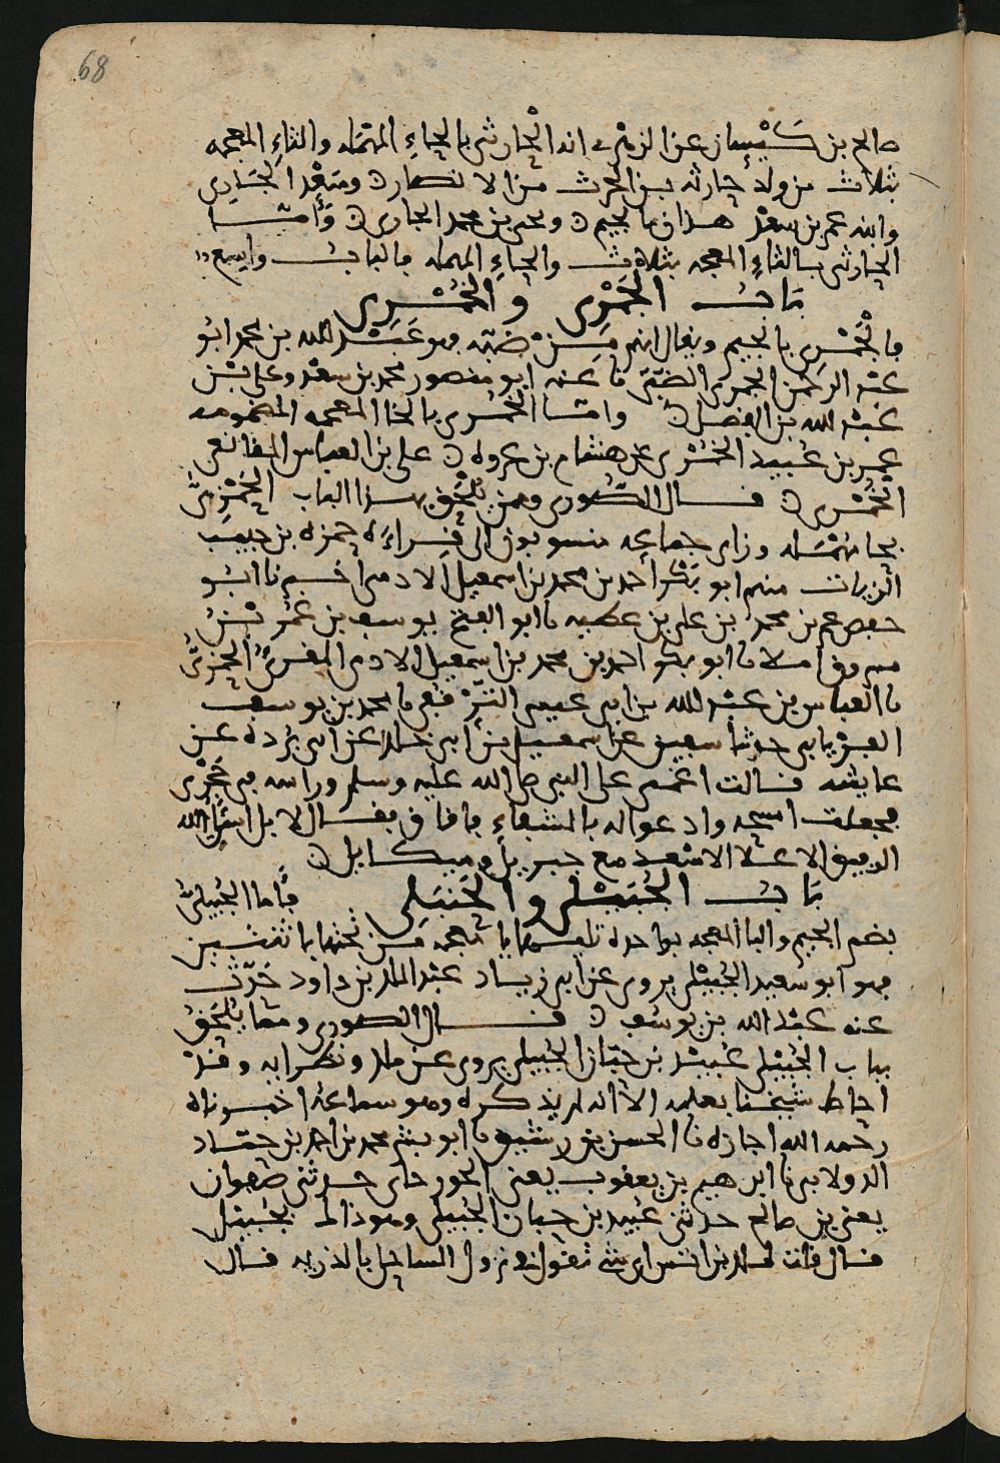 68
صالح بن كَيْسان عن الزهري انه الحارثي بالحاء المهملة والثاء المعجمة
بثلاث من ولد حارثة بن الحرث من الانصار ومنعقد الجاري
وابنه عمر بن سعد هذان بالجيم ويحيى بن محمد الجاري وأمّا
الحارثي بالثاء المعجمة بثلاث والحاء المهملة فالباب واسع
بَابُ الجَمْرِي والخُمْرِي
فالجَمْري بالجيم ويقال انهم من ضبّة فهو عَبْد الله بن محمد ابو
عبد الرحمن الجمري الضبّيّ نا عنه ابو منصور محمد بن سعد وعلي بن
عبد الله بن الفضل وامّا الخُمْري بالخا المعجمة المضمومة
عمير بن عُبيد الخُمْري عن هشام بن عروة علي بن العباس المقانعي
الخُمْري قال الصُوري وممن يُلْحق بهذا الباب الحَمْزيّ
بحا مهملة وزاي جماعة منسوبون الى قراءة حمزة بن حبيب
الزيات منهم ابو بَكْر احمد بن محمد بن اسمعيل الادمي اخبرنا ابو
حفص عمر بن محمد بن علي بن عطية نا ابو الفتح يوسف بن عُمَر بن
مسروق املا نا ابو بكر احمد بن محمد بن اسمعيل الادمي المقرئ الحمزيّ
نا العباس بن عبد الله بن ابي عيسى الترقفي نا محمد بن يوسف
الفريابي حدثنا سفين عن اسمعيل بن ابي خالد عن ابي بُردة عن
عايشة قالت اغمي على النبي صلى الله عليه وسلم وراسه في حَجْري
فجعلت امسحه وادعو له بالشفاء فافاق فقال لا بل اسْأَل الله
الرفيق الاعلا الاسعد مع جبريل وميكايل
بَابُ الجُبَيْلي والحَنبَلِي فأما الجُبيليّ
بضم الجيم والبا المعجمة بواحدة تليها يا معجمة من تحتها باثنتين
فهو ابو سعيد الجُبَيْلي يروي عن ابي زياد عبد الملك بن داود حَدّث
عنه عبد الله بن يوسف قال الصوري ومما يُلحَق
بباب الجُبَيْلي عُبيْد بن حيّان الجُبيلي يروي عن ملك ونظرايه وقد
احاط شيخنا بعلمه الا انه لم يذكره وهو سماعنا اخبرناه
رحمه الله اجازة نا الحسن بن رشيق نا ابو بشر محمد بن احمد بن حمّاد
الدولابي نا ابرهيم بن يعقوب يعني الجوزجاني حدثني صفوان
يعني بن صالح حدثني عُبيد بن حيان الجُبيلي وهو ذاك بجُبيْل
قال قلت لملك بن انس اي شي تقول في نزول الساحل بالذرية قال